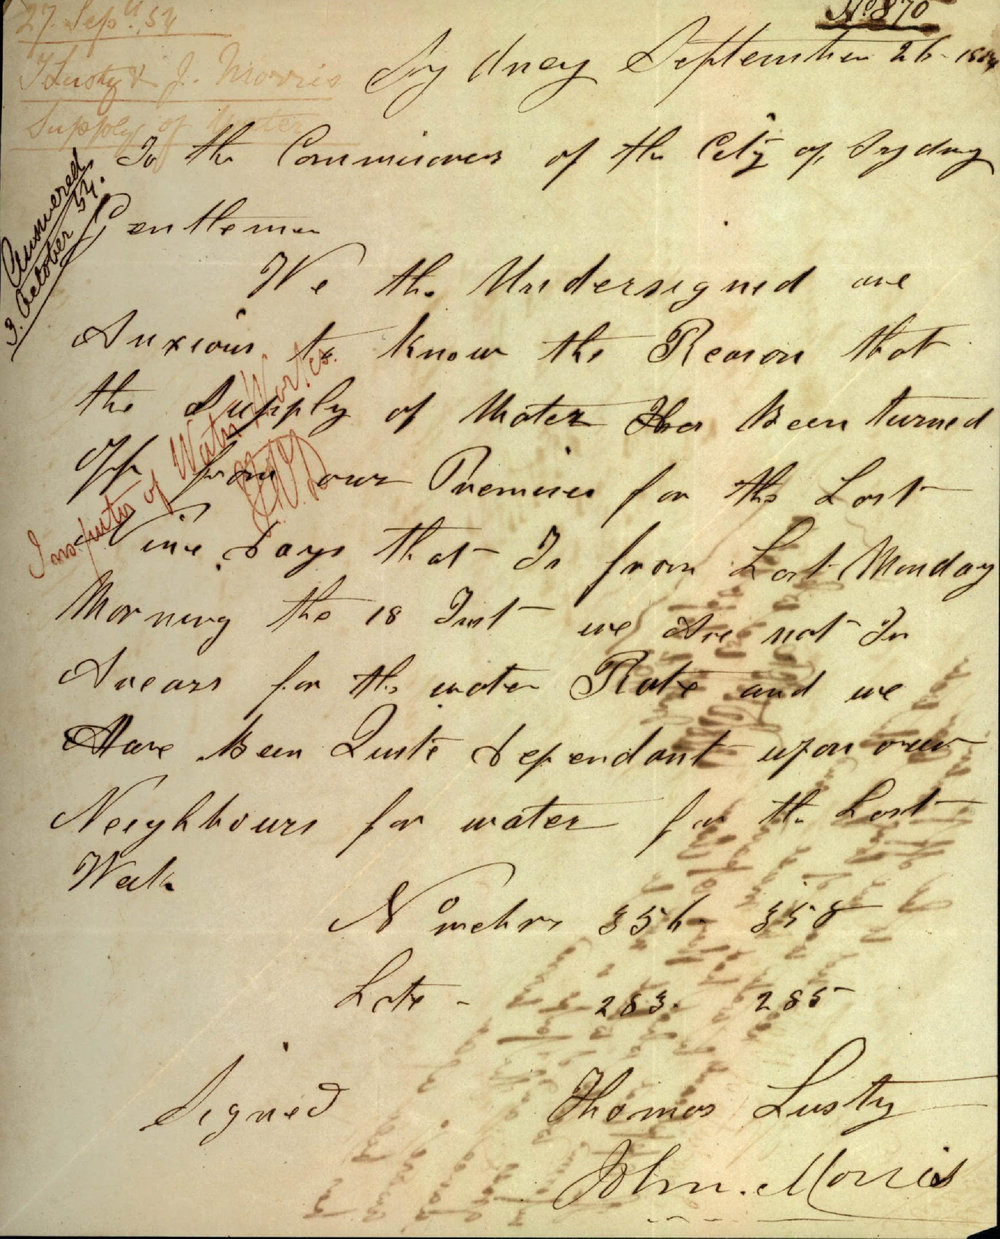 27 Sepr. 54
No. 870
T Lusty & J. Morris
Supply of Water
Sydney September 26 1854
Answered
3. October 54.
To the Commisioners of the City of Sydney
Gentlemen
We the Undersigned are
Anxious to know the Reason that
the Supply of Water Has Been turned
off from our Premises for the Last
Nine days that Is from Last Monday
Morning the 18 Inst we Are not In
Arears for the water Rate and we
Have Been Quite dependant upon ower
Neighbours for water for the Last
Week
Inspector of Water Works
Numbers 356 358
Late - 283. 285
Signed Thomas Lusty
John. Morris